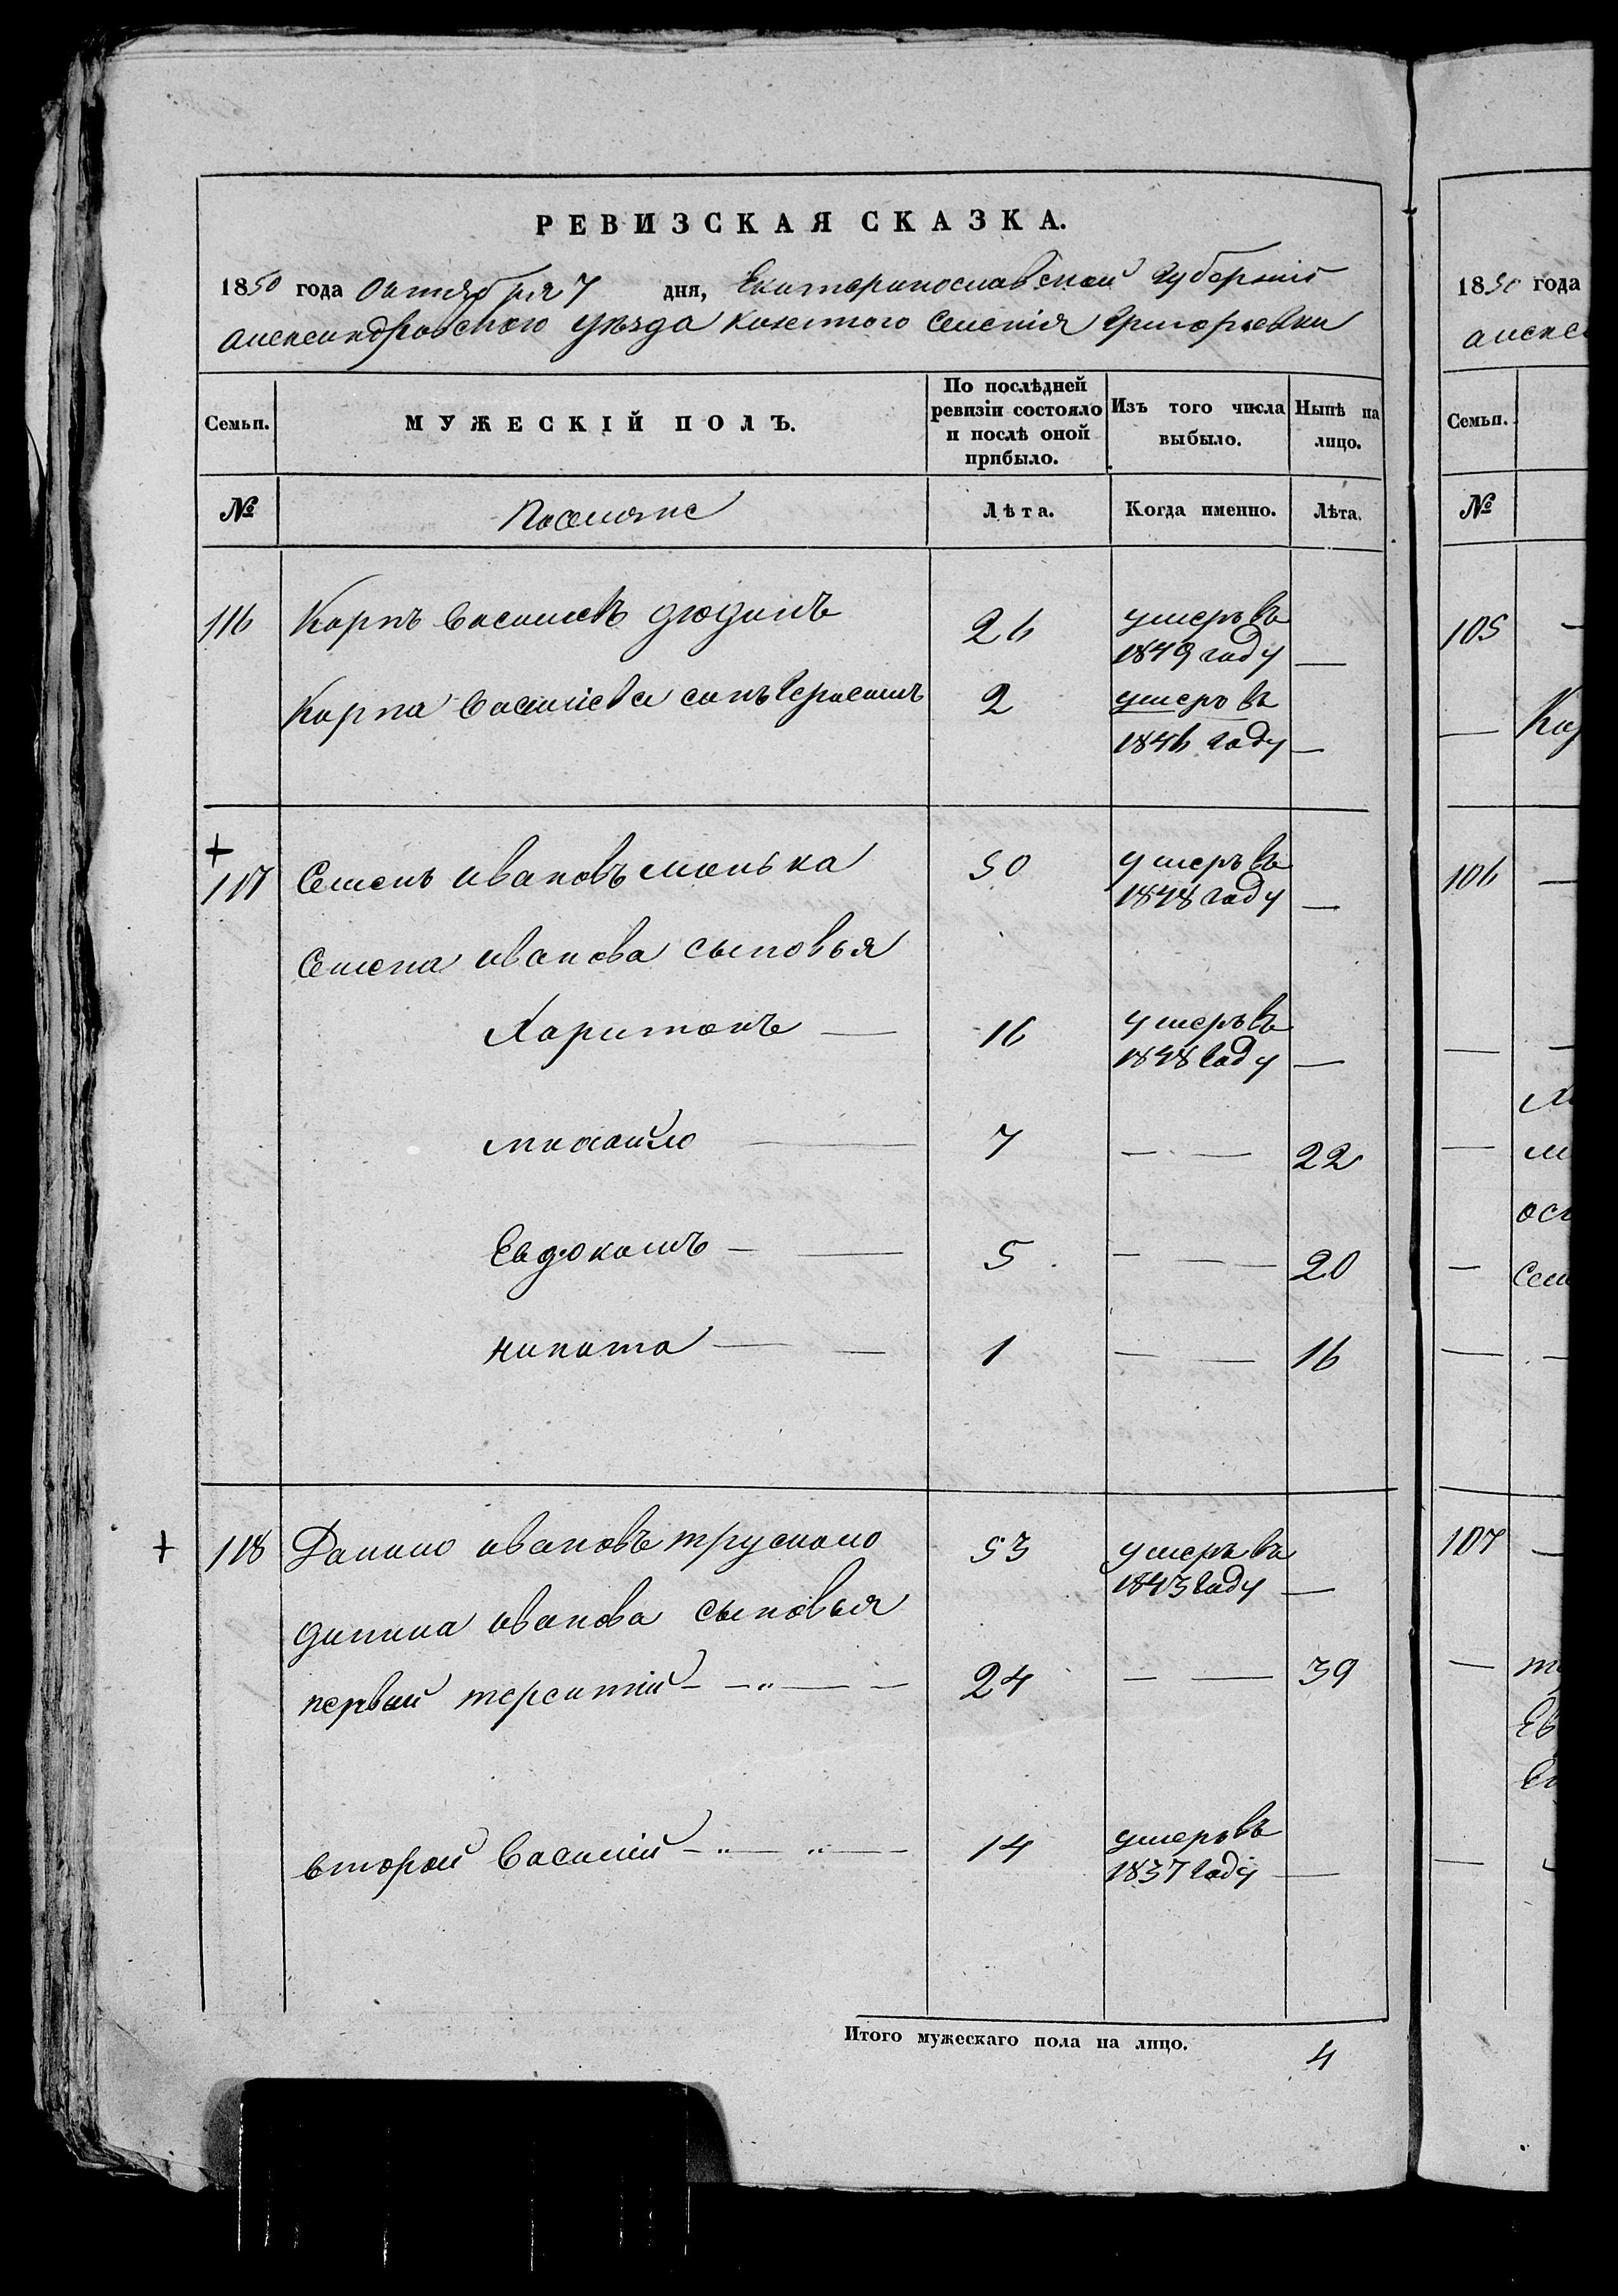 РЕВИЗСКАЯ СКАЗКА.
1850 года Октября 7 дня, Екатеринославской Губернiи
Александровского уѣзда Казенного Селенiя Григорьевки
Семьи.
МУЖЕСКIЙ ПОЛЪ.
По послѣдней ревизiи состояло и послѣ оной прибыло.
Изъ того числа выбыло.
Нынѣ на лицо.
№
Поселяне
Лѣта.
Когда именно.
Лѣта.
116 Карпъ Васильевъ Дюдинъ 26 умеръ въ 1849 году —
Карпа Васильева сынъ Герасимъ 2 умеръ въ 1846 году —
+
117 Семенъ Ивановъ 50 умеръ въ 1848 году —
Семена Иванова сыновья
Харитонъ — 16 умеръ въ 1848 году —
Михайло — 7 — — 22
Евдокимъ — — 5 — — — 20
Никита — — 1 — — 16
+ 118 Данило Ивановъ 53 умеръ въ 1843 году —
Данила Иванова сыновья
первый Терентiй — — „ — — 24 — — 39
второй Василiй — „ — „ — 14 умеръ въ 1837 году —
Итого мужескаго пола на лицо. 4
1850 года
Алекс
Семьи.
№
105 —
— Кар
106 —
— —
— М
ос
— Сем
— —
107 —
— те
Ев